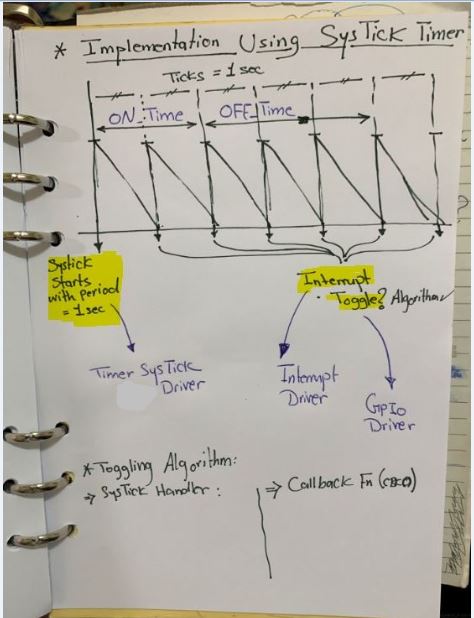 * Implementation Using SysTick Timer
Ticks = 1 sec
ON_Time
OFF_Time
Systick
Starts
with period
= 1 sec
Interrupt
Toggle? Algorithm
Timer SysTick
Driver
Interrupt
Driver
GPIO
Driver
* Toggling Algorithm:
⇒ SysTick Handler :
⇒ Callback Fn